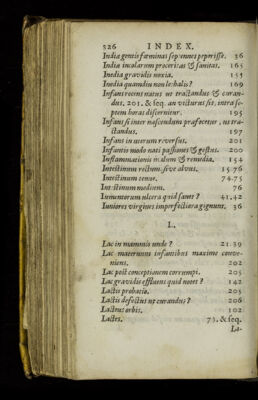 326 INDEX.
Indiæ gentis fæminas septennes peperisse. 36
India incolarum proceritas & sanitas. 165
Inedia gravidis noxia. 155
Inedia quamdiu non lethalis? 169
Infans recens natus ut tractandus & curan-
dus. 201. & seq. an victurus sit, intra se-
ptem horas discernitur. 195
Infans si inter nascendum præfocetur, ut tra-
ctandus. 197
Infans in uterum reversus. 201
Infantis modo nati passiones & gestus. 200
Inflammationis in alvo & remedia. 154
Intestinum rectum, sive alvus. 15.76
Intestinum tenue. 74.75
Intestinum medium. 76
Juniores virgines imperfectiora gignunt. 36
L.
Lac in mammis unde? 21.39
Lac maternum infantibus maxime conve-
niens. 202
Lac post conceptionem corrumpi. 205
Lac gravidis effluens quid notet? 142
Lactis probatio. 203
Lactis defectus ut curandus? 206
Lacteus orbis. 102
Lactes. 73. & seq.
La-